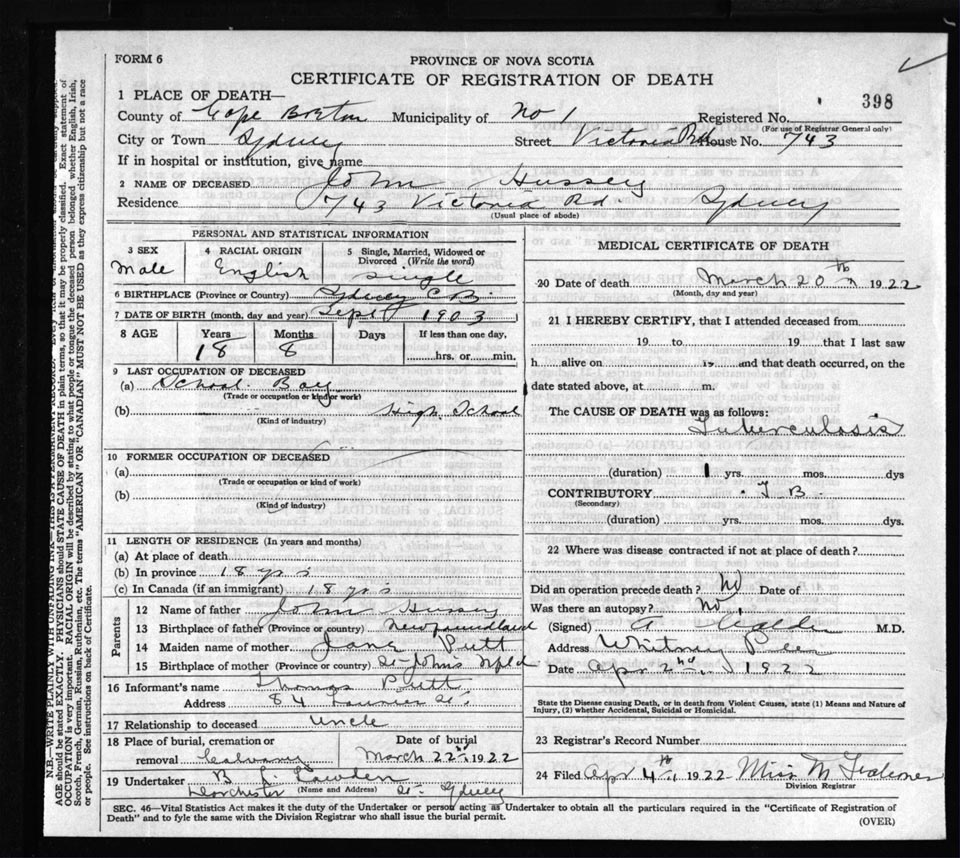 FORM 6
PROVINCE OF NOVA SCOTIA
CERTIFICATE OF REGISTRATION OF DEATH
398
1 PLACE OF DEATH—
County of Cape Breton Municipality of No 1 Registered No.
(For use of Registrar General only)
City or Town Sydney Street Victoria Rd House No. 743
If in hospital or institution, give name
2 NAME OF DECEASED John Hussey
Residence 743 Victoria Rd. Sydney
(Usual place of abode)
PERSONAL AND STATISTICAL INFORMATION
3 SEX 4 RACIAL ORIGIN 5 Single, Married, Widowed or Divorced (Write the word)
Male English Single
6 BIRTHPLACE (Province or Country) Sydney C.B.
7 DATE OF BIRTH (month, day and year) Sept 1903
8 AGE Years Months Days If less than one day,
18 8 hrs. or min.
9 LAST OCCUPATION OF DECEASED
(a) School Boy
(Trade or occupation or kind of work)
(b) High School
(Kind of industry)
10 FORMER OCCUPATION OF DECEASED
(a)
(Trade or occupation or kind of work)
(b)
(Kind of industry)
11 LENGTH OF RESIDENCE (In years and months)
(a) At place of death
(b) In province 18 yrs
(c) In Canada (if an immigrant) 18 yrs
Parents
12 Name of father John Hussey
13 Birthplace of father (Province or country) Newfoundland
14 Maiden name of mother Jane Putt
15 Birthplace of mother (Province or country) St-Johns Nfld
16 Informant's name Thomas Putt
Address 84 St.
17 Relationship to deceased uncle
18 Place of burial, cremation or removal Calvary Date of burial March 22nd, 1922
19 Undertaker B.
(Name and Address)
Dorchester St. Sydney
MEDICAL CERTIFICATE OF DEATH
20 Date of death March 20th 1922
(Month, day and year)
21 I HEREBY CERTIFY, that I attended deceased from
19 to 19 that I last saw
h alive on 19 and that death occurred, on the
date stated above, at m.
The CAUSE OF DEATH was as follows:
Tuberculosis
(duration) 1 yrs. mos. dys
CONTRIBUTORY T B.
(Secondary)
(duration) yrs. mos. dys.
22 Where was disease contracted if not at place of death?
Did an operation precede death? No Date of
Was there an autopsy? No
(Signed) A M.D.
Address Whitney Pier
Date Apr 2nd 1922
State the Disease causing Death, or in death from Violent Causes, state (1) Means and Nature of
Injury, (2) whether Accidental, Suicidal or Homicidal.
23 Registrar's Record Number
24 Filed Apr 4th, 1922 Miss M
Division Registrar
SEC. 46—Vital Statistics Act makes it the duty of the Undertaker or person acting as Undertaker to obtain all the particulars required in the "Certificate of Registration of
Death" and to fyle the same with the Division Registrar who shall issue the burial permit.
(OVER)
N.B.—WRITE PLAINLY WITH UNFADING INK—THIS IS A PERMANENT RECORD.
AGE should be stated EXACTLY. PHYSICIANS should STATE CAUSE OF DEATH in plain terms, so that it may be properly classified. Exact statement of
OCCUPATION is very important. RACIAL ORIGIN will be described by stating to what people or tongue the deceased person belonged whether English, Irish,
Scotch, French, German, Russian, Ruthenian, etc. The terms "AMERICAN" OR "CANADIAN" MUST NOT BE USED as they express citizenship but not a race
or people. See instructions on back of Certificate.